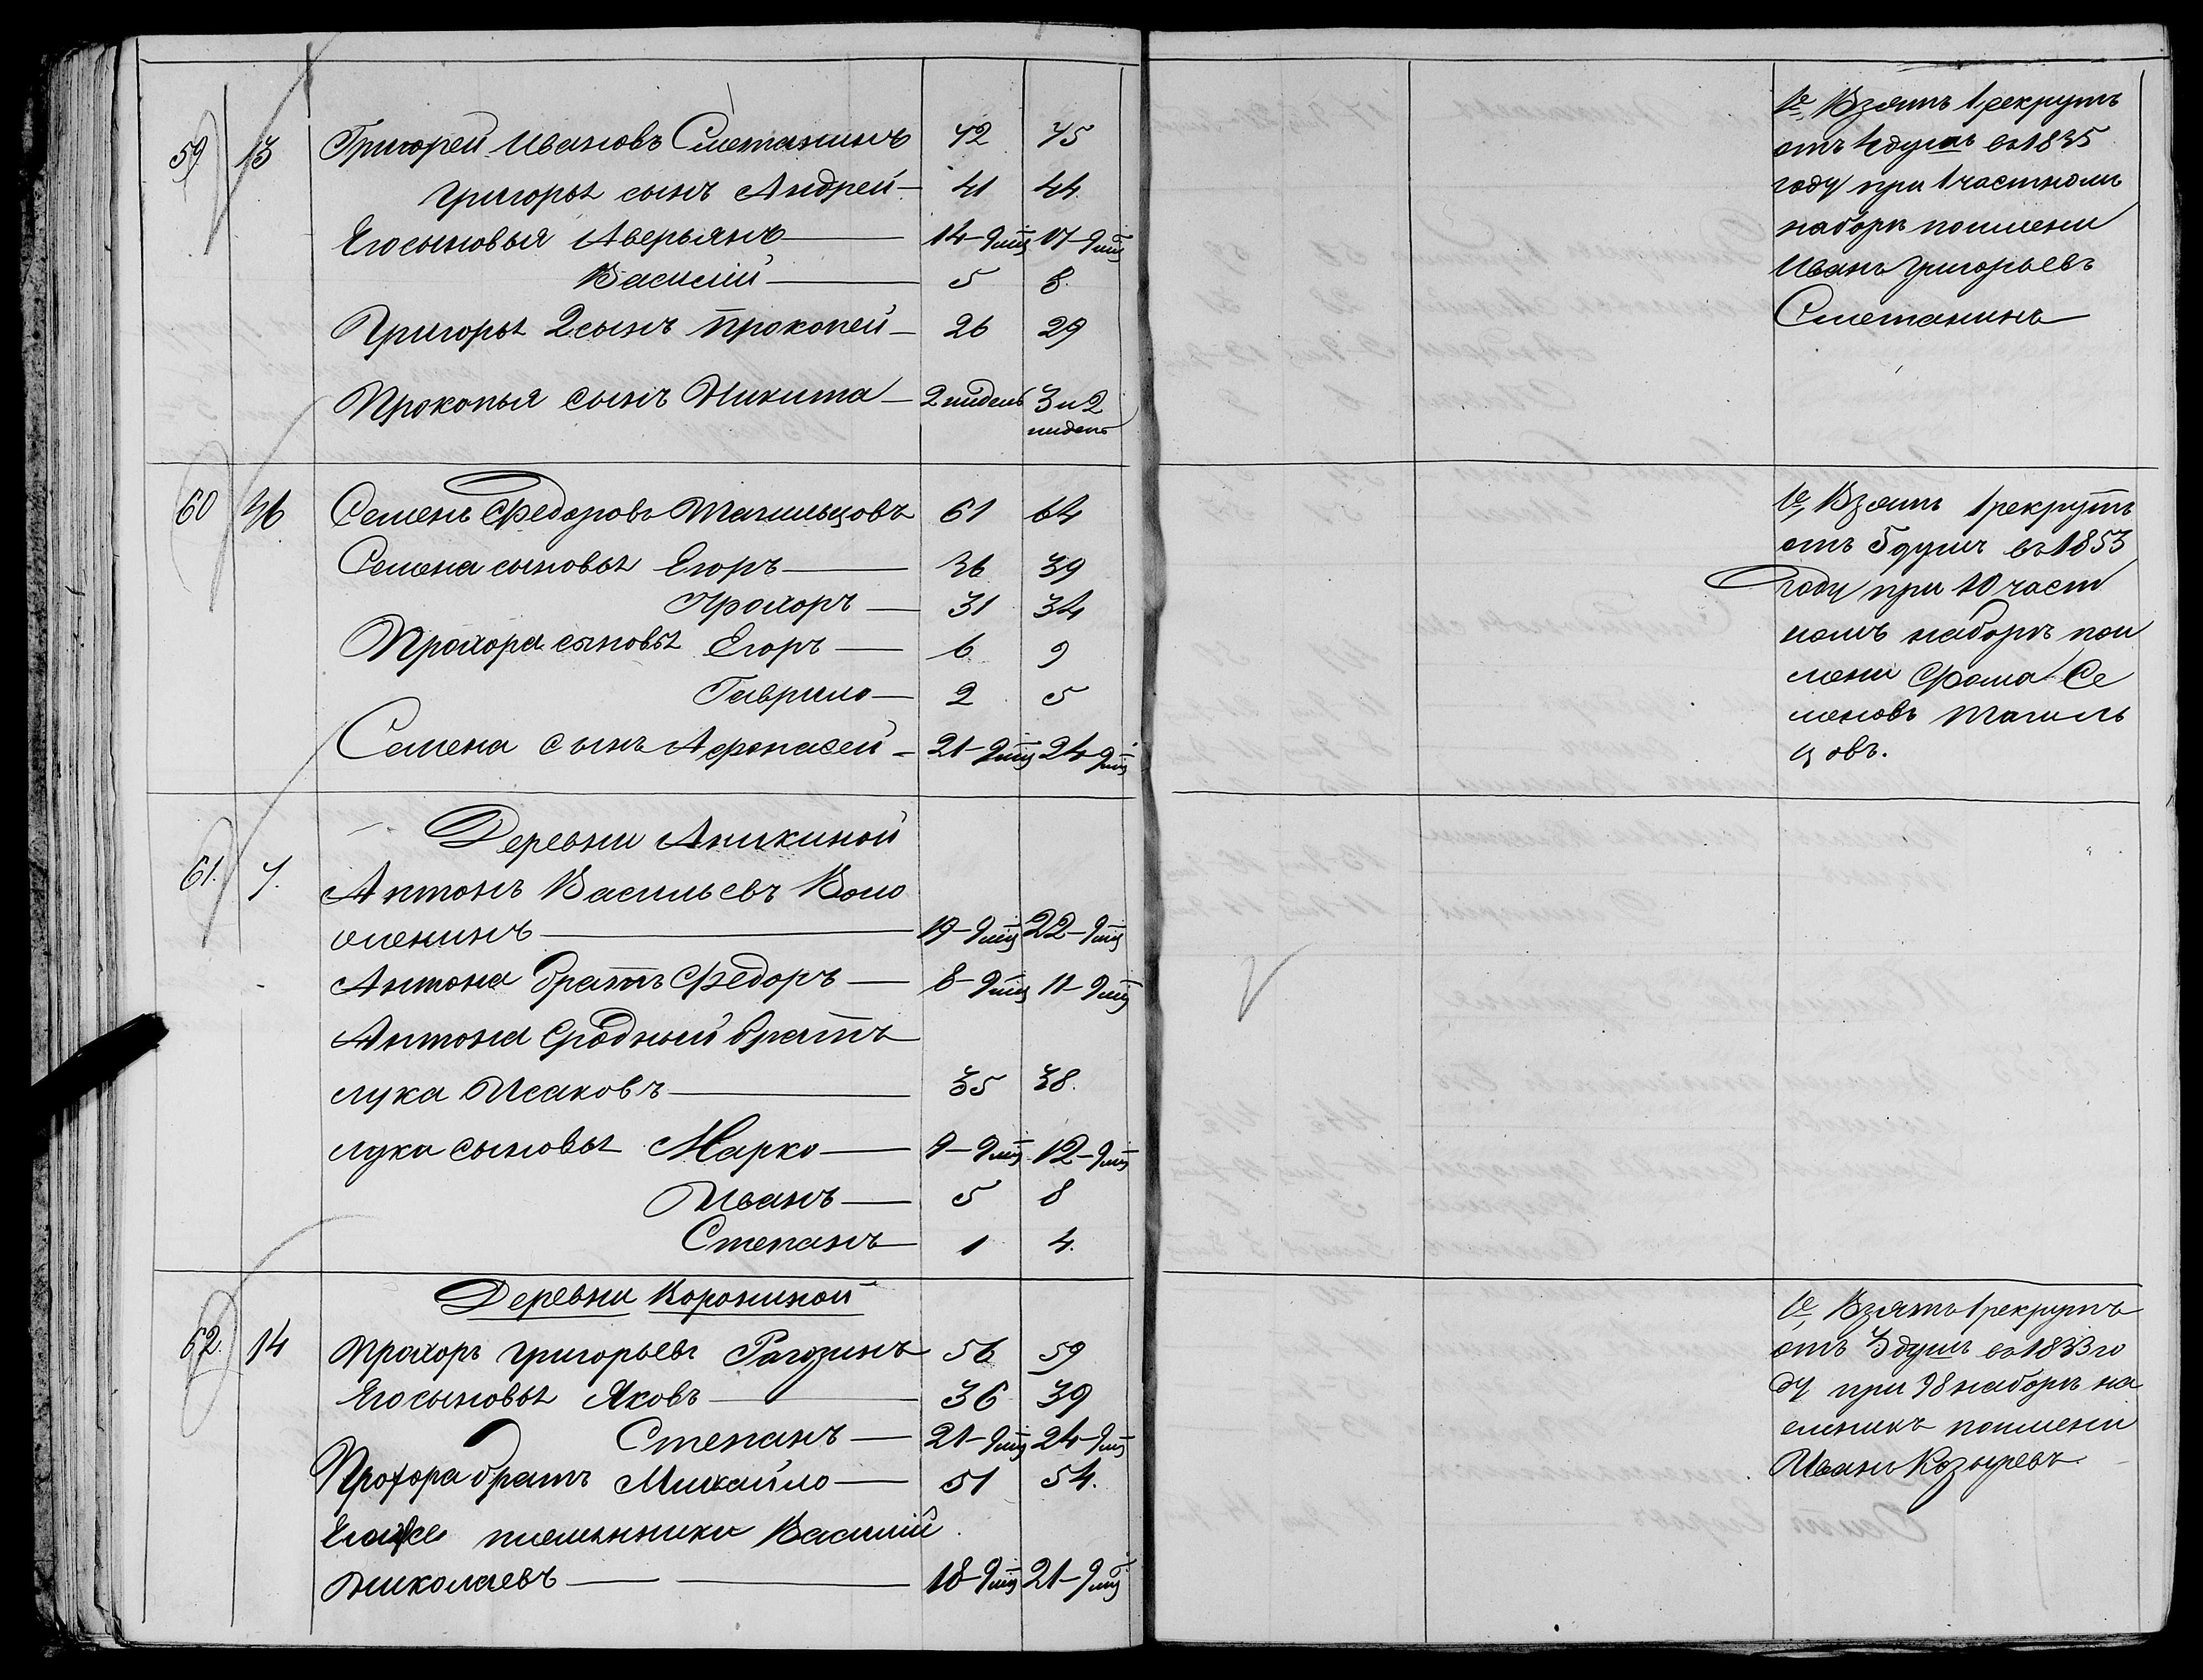 59 13 Григорей Ивановъ Сметанинъ 72 75
Григорья сынъ Андрей 41 44
Его сыновья Аверьянъ 14-9 мц 17-9 мц
Василiй 5 8.
Григорья 2 сынъ Прокопей 26 29
Прокопья сынъ Никита 2 нидель 3 и 2
нидель
60 36 Семенъ Федоровъ Тагильцовъ 61 64
Семена сыновья Егоръ 36 39
Прохоръ 31 34
Прохора сыновья Егоръ 6 9
Гаврило 2 5
Семена сынъ Афонасей 21-9 мц 24-9 мц
Деревни Аникиной
61. 7. Антонъ Васильевъ Воло
19-9 мц 22-9 мц
Антона братъ Федоръ 8-9 мц 11-9 мц
Антона Сродный братъ
лука Исаковъ 35 38.
лука сыновья Марко 9-9 мц 12-9 мц
Иванъ 5 8
Степанъ 1 4.
Деревни Корониной
62. 14 Прохоръ Григорьевъ Рагозинъ 56 59
Его сыновья Яковъ 36 39
Степанъ 21-9 мц 24-9 мц
Прохора братъ Михайло 51 54.
Егоже племянники Василiй
Николаевъ 18-9 мц 21-9 мц
1е, Взятъ 1 рекрутъ
отъ душъ въ 1835
году при 1 частномъ
наборѣ поимени
Иванъ Григорьевъ
Сметанинъ
1е, Взятъ 1 рекрутъ
отъ 5 душъ въ 1853
году при 10 част
номъ наборѣ пои
мени Фома Се
меновъ Тагиль
цовъ.
1е, Взятъ 1 рекрутъ
отъ 3 душъ въ 1833 го
ду при 98 наборѣ на
емникъ поимени
Иванъ Козыревъ.